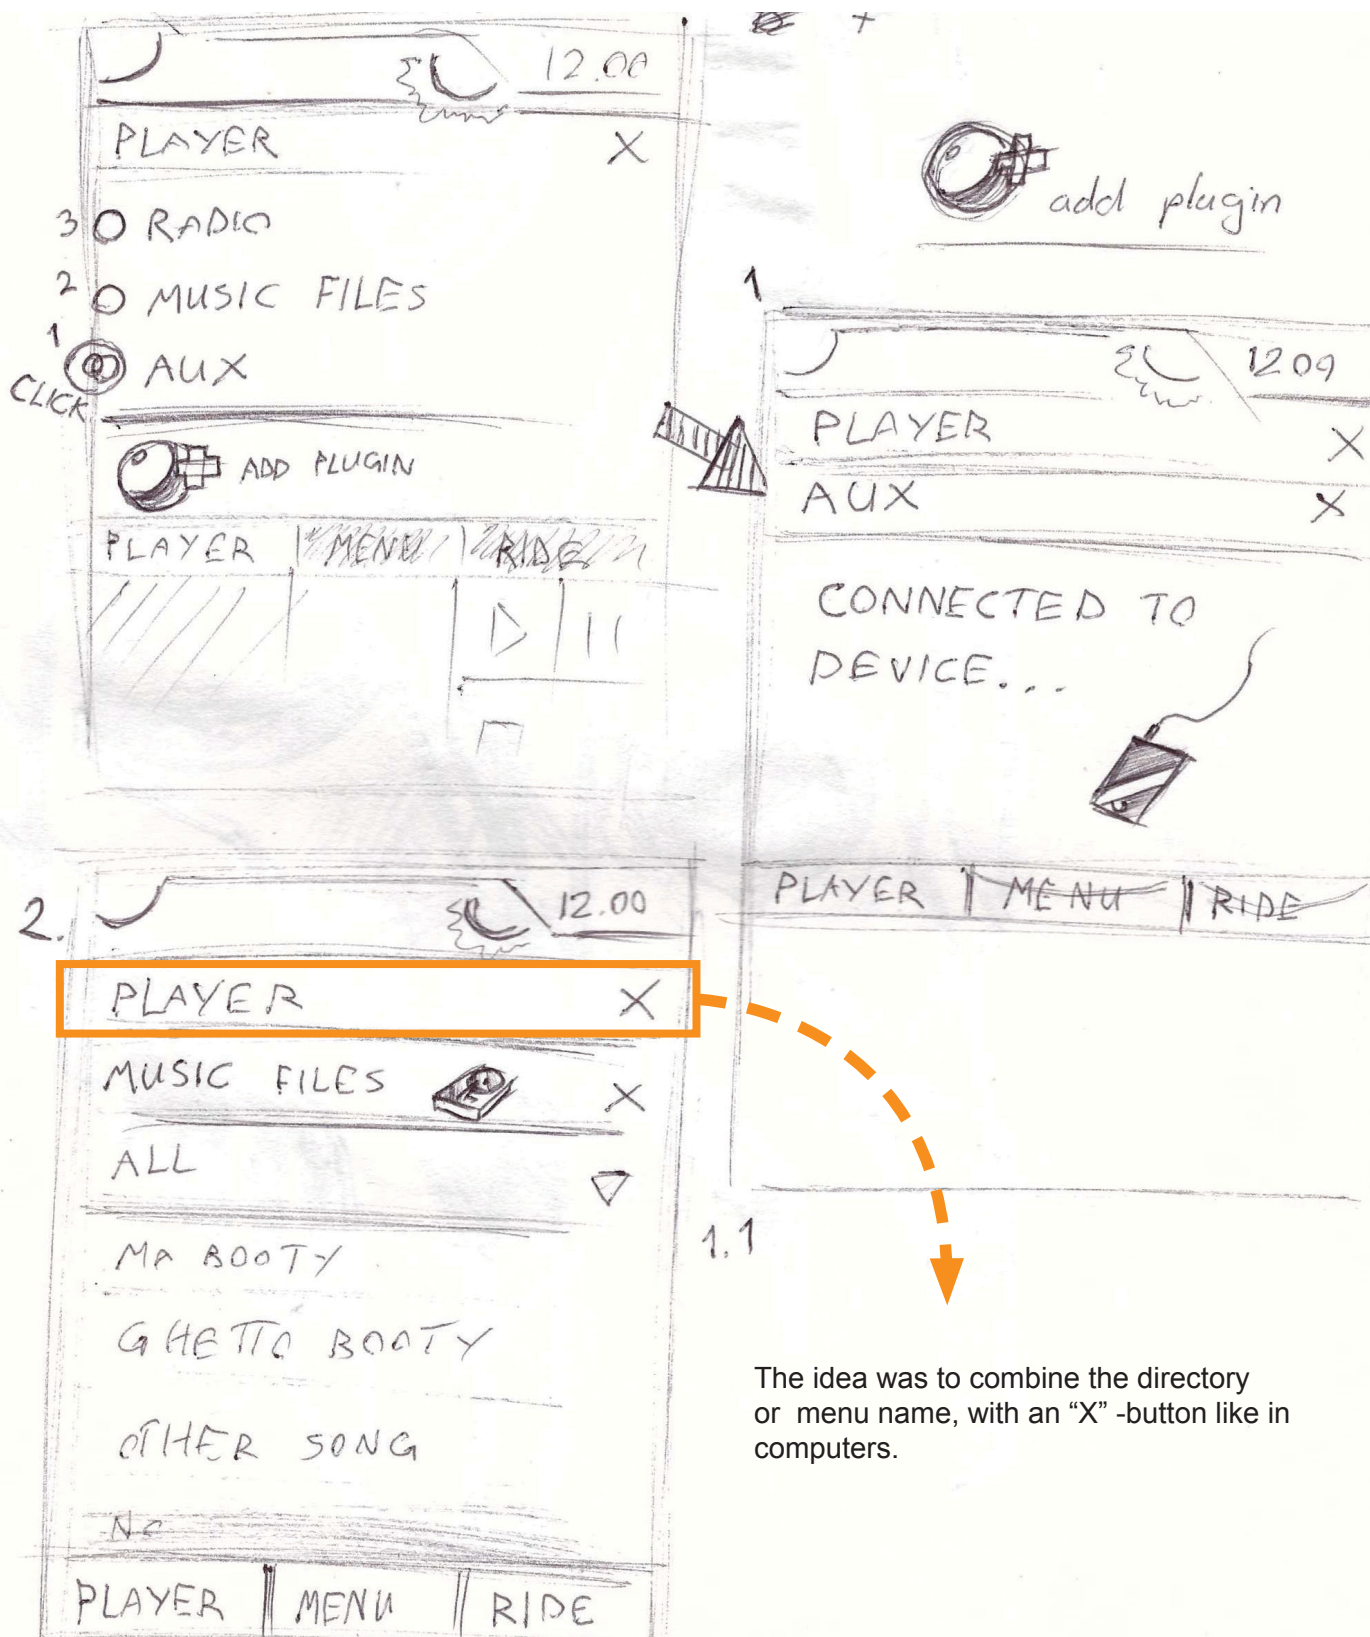 12.00
PLAYER X
3 RADIO
2 MUSIC FILES
1 AUX
CLICK
ADD PLUGIN
PLAYER MENU RIDE
add plugin
1
12 09
PLAYER X
AUX X
CONNECTED TO
DEVICE...
PLAYER MENU RIDE
1.1
2.
12.00
PLAYER X
MUSIC FILES X
ALL
MA BOOTY
GHETTO BOOTY
OTHER SONG
No
PLAYER MENU RIDE
The idea was to combine the directory
or menu name, with an “X” -button like in
computers.